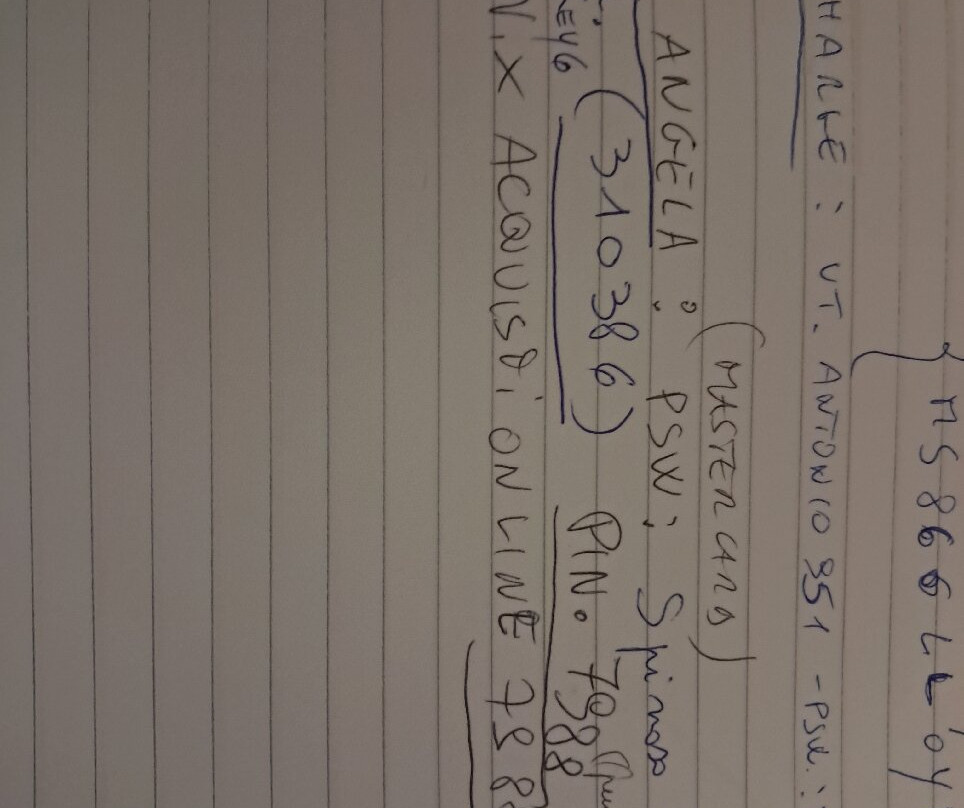 MS866LL04
HARLE : UT. ANTONIO 351 - PSW. :
(MASTERCARD)
ANGELA : PSW: Spinoso
(310386) PIN. 7988
KEY6
N. X ACQUISTI ON LINE 798